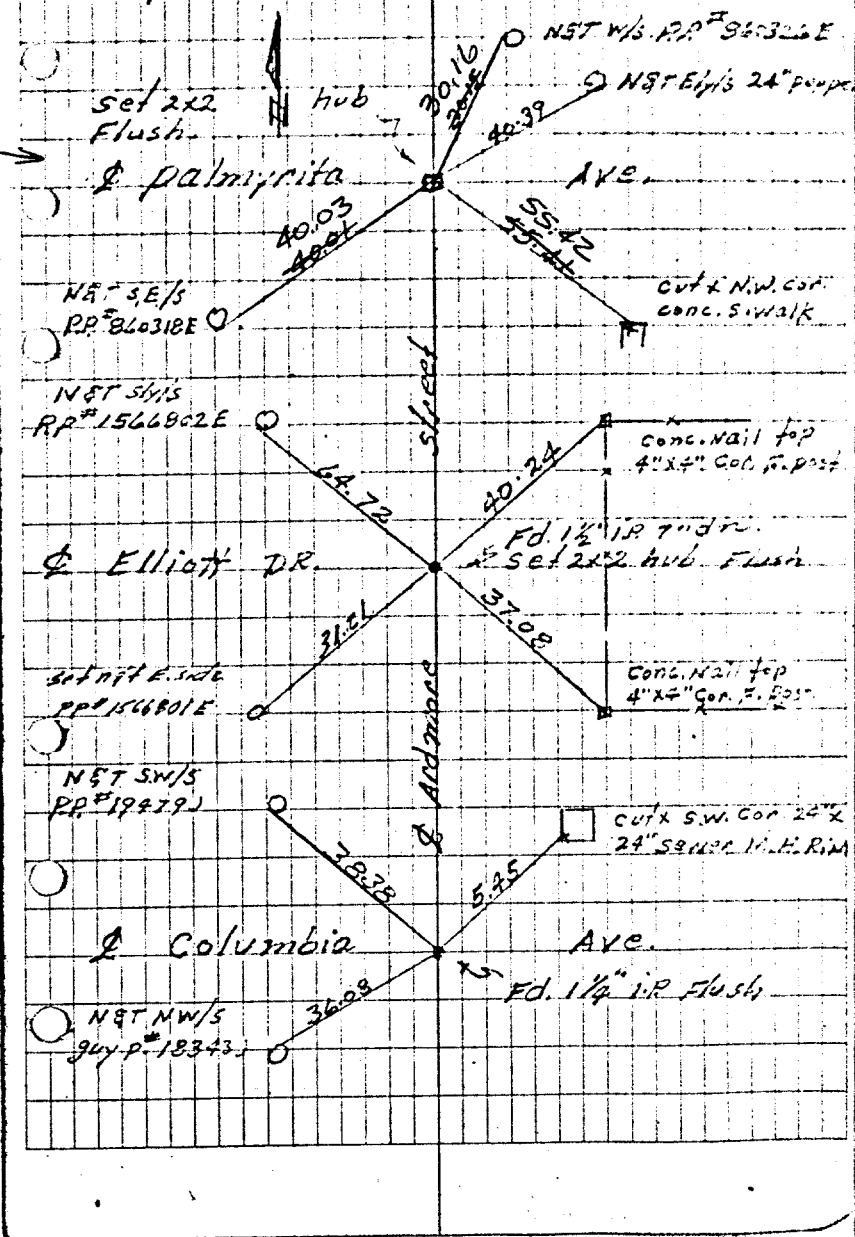 N&T W/s P.P. # 860326E
N&T Ely/s 24" pepper
set 2x2 hub
Flush
30.16
40.39
℄ Palmyrita Ave.
40.03
40.01
55.42
N&T S.E/s
P.P. # 860318E
cut x N.W. cor.
conc. s.walk
N&T Sly/s
P.P. # 1566802E
Street
conc. nail top
4"x4" Cor. F. post
64.72
40.24
℄ Elliott DR.
Fd. 1½" I.P. 7" dn.
Set 2x2 hub Flush
31.21
37.08
set n&t E. side
PP # 1566801E
conc. nail top
4"x4" Cor. F. Post
℄ Ardmore
N&T S.W/s
P.P. # 19479J
cut x S.W. Cor. 24" x
24" sewer M.H. Rim
38.38
5.45
℄ Columbia Ave.
Fd. 1¼" I.P. Flush
36.08
N&T NW/s
guy p. # 18343J